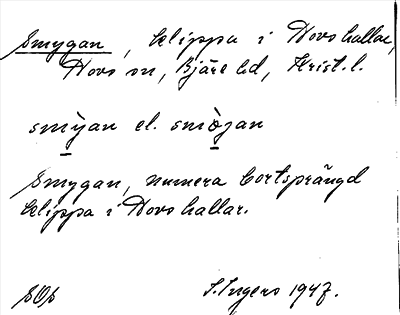 Smygan, klippa i Hovs hallar,
Hovs sn, Bjäre hd, Krist. l.
smỳgan el. smògan
Smygan, numera bortsprängd
klippa i Hovs hallar.
S. Ingers 1947.